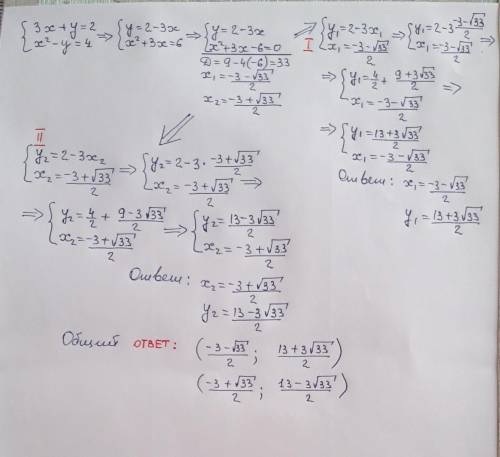 {3x+y=2 ⇒ {y=2-3x ⇒ {y=2-3x
{x²-y=4 {x²+3x=6 {x²+3x-6=0
D=9-4(-6)=33
x₁=(-3-√33)/2
x₂=(-3+√33)/2
⇒ I {y₁=2-3x₁ ⇒ {y₁=2-3·(-3-√33)/2 ⇒
{x₁=(-3-√33)/2 {x₁=(-3-√33)/2
⇒ {y₁=4/2+(9+3√33)/2 ⇒
{x₁=(-3-√33)/2
⇒ {y₁=(13+3√33)/2
{x₁=(-3-√33)/2
Ответ: x₁=(-3-√33)/2
y₁=(13+3√33)/2
II
{y₂=2-3x₂ ⇒ {y₂=2-3·(-3+√33)/2
{x₂=(-3+√33)/2 {x₂=(-3+√33)/2 ⇒
⇒ {y₂=4/2+(9-3√33)/2 ⇒ {y₂=(13-3√33)/2
{x₂=(-3+√33)/2 {x₂=(-3+√33)/2
Ответ: x₂=(-3+√33)/2
y₂=(13-3√33)/2
Общий ОТВЕТ: ((-3-√33)/2; (13+3√33)/2)
((-3+√33)/2; (13-3√33)/2)